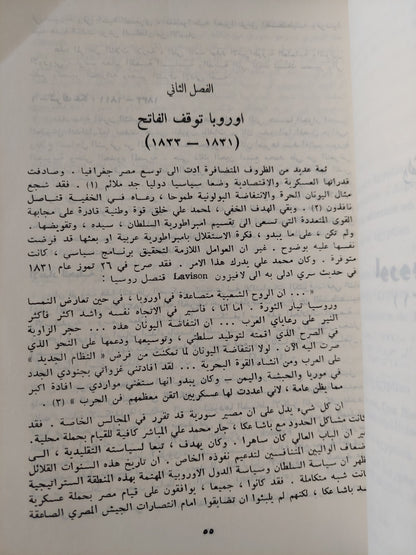 الفصل الثاني
اوروبا توقف الفاتح
(١٨٣١ — ١٨٣٣)
ثمة عديد من الظروف المتضافرة ادت الى توسع مصر جغرافيا . وصادفت
قدراتها العسكرية والاقتصادية وضعا سياسيا دوليا جد ملائم (١) . فقد شجع
مثال اليونان الحرة والانتفاضة البولونية طموحا ، رعاه في الخفية قناصل
نافذون (٢) . وبقي الهدف الخفي ، لمحمد علي خلق قوة وطنية قادرة على مجابهة
القوى المتعددة التي تسعى الى تقسيم امبراطورية السلطان ، سيده ، وتقويضها .
ولم تكن ، على ما يبدو ، فكرة الاستقلال بامبراطورية عربية او بعثها قد فرضت
نفسها عليه بوضوح . غير ان العوامل اللازمة لتحقيق برنامج سياسي ، كانت
متوفرة . وكان محمد علي يدرك هذا الامر . فقد صرح في ٢٦ تموز عام ١٨٣١
في حديث سري ادلى به الى لافيزون Lavison قنصل روسيا :
« ... ان الروح الشعبية متصاعدة في اوروبا ، في حين تعارض النمسا
وروسيا تيار الثورة . اما انا ، فأسير في الاتجاه نفسه واشد اكثر فأكثر
النير على رعاياي العرب ... ان انتفاضة اليونان هذه ... حجر الزاوية
في الصرح الذي اقمته لتوطيد سلطتي ، وتوسيعها ودعمها على النحو الذي
صرت اليه الآن . لولا انتفاضة اليونان لما تمكنت من فرض « النظام الجديد »
على العرب ومن انشاء القوة البحرية ... لقد افادتني غزواتي بجنودي الجدد
في موريا والحبشة واليمن — وكان يبدو انها ستفني مواردي — افادة اكبر
مما يظن عامة ، لاني اعددت لها عسكريين اتقن معظمهم فن الحرب » (٣) .
ان كل شيء يدل على ان مصير سورية قد تقرر في المجالس الخاصة . فقد
كانت مشاكل الحدود مع باشا عكا ، جار محمد علي المباشر كافية للقيام بحملة محلية.
غير ان الباب العالي كان ساهرا . وكان يهدف ، تبعا لسياسته التقليدية ، الى
اضعاف الواليين المتنافسين لتدعيم نفوذه الخاص . ان تاريخ هذه السنوات القلائل
يظهر ان سياسة السلطان وسياسة الدول الاوروبية المهتمة بهذه المنطقة الستراتيجية
كانت شبه متكاملة . فقد كانوا ، جميعا ، يوافقون على قيام مصر بحملة عسكرية
ضد باشا عكا ، لكنهم لم يلبثوا ان تضايقوا امام انتصارات الجيش المصري الصاعقة
٥٥